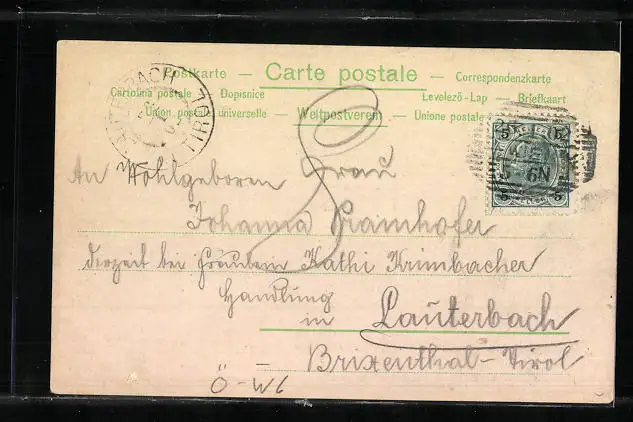 Postkarte — Carte postale — Correspondenzkarte
Cartolina postale — Dopisnice Levelező-Lap — Briefkaart
Union postale universelle — Weltpostverein — Unione postale
LAUTERBACH TIROL
5 5
6N
5 5
An Wohlgeboren Frau
Johanna Pramhofer
derzeit bei Fräulein Kathi Krimbacher
Handlung
in Lauterbach
Brixenthal-Tirol
Ö-W6